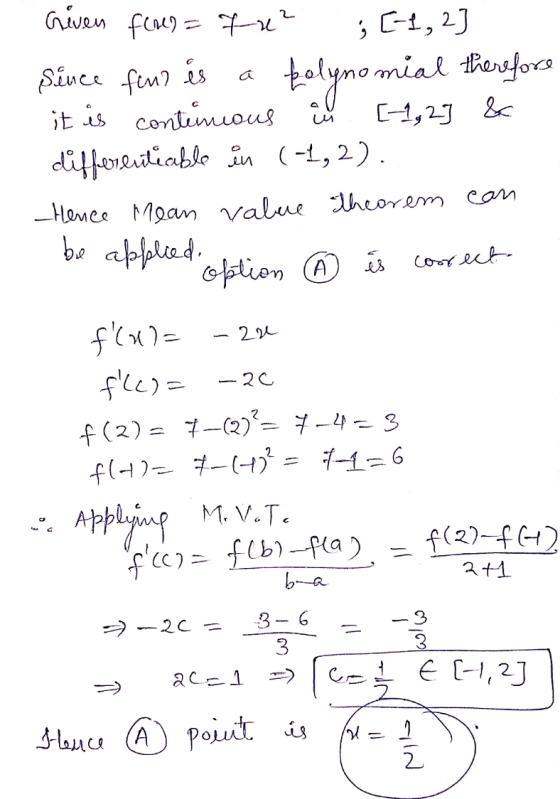 Given f(x) = 7-x² ; [-1, 2]
Since f(x) is a polynomial therefore
it is continuous in [-1,2] &
differentiable in (-1, 2).
Hence Mean value theorem can
be applied.
option Ⓐ is correct.
f'(x) = -2x
f'(c) = -2c
f(2) = 7-(2)² = 7-4 = 3
f(-1) = 7-(-1)² = 7-1 = 6
∴ Applying M.V.T.
f'(c) = f(b)-f(a) / b-a = f(2)-f(-1) / 2+1
⇒ -2c = 3-6 / 3 = -3 / 3
⇒ 2c = 1 ⇒ c = 1/2 ∈ [-1, 2]
Hence Ⓐ point is x = 1/2.